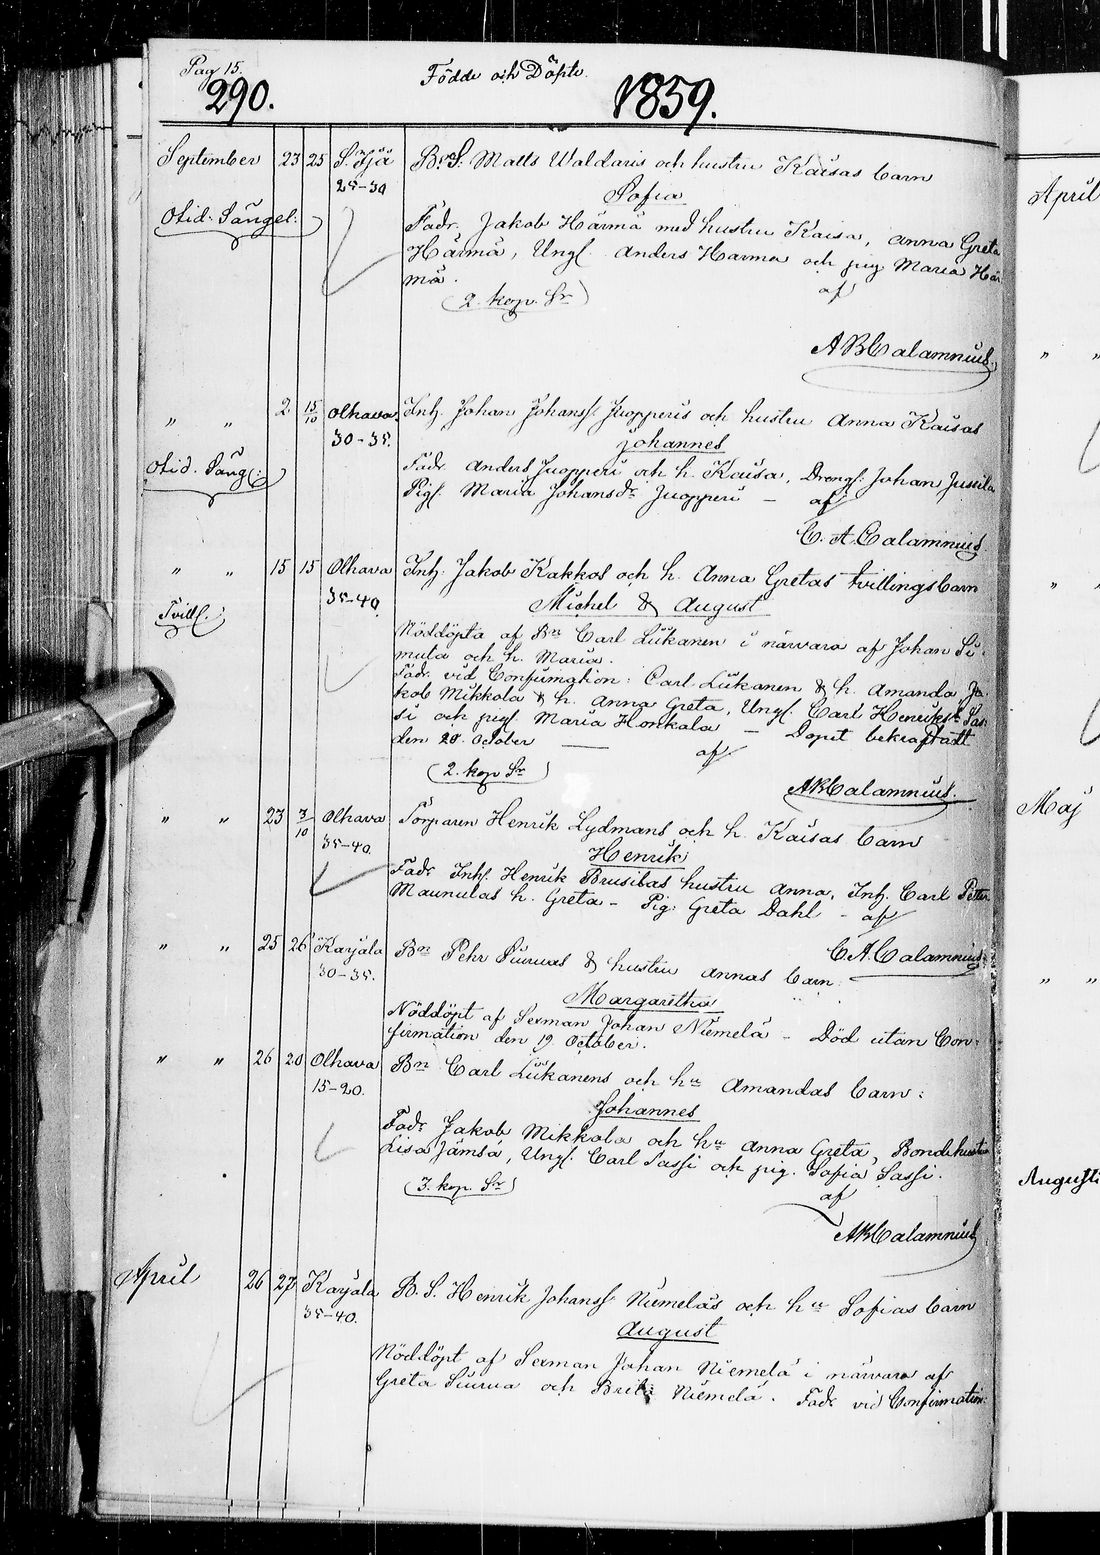 Pag 15.
290.
Födde och Döpte.
1859.
September 23 25 S. Ijä
25-30
Otid. Sängel:
BrS. Matts Waldaris och hustru Kaisas barn
Sofia
Fadr. Jakob Härmä med hustru Kaisa, Anna Greta
Härmä, Ungl. Anders Harma och pig Maria Här
mä.
af
(2. kop. Sr)
ABCalamnius.
" " 2 15/10 Olhava
30-35.
Otid. Sängl:
Inh. Johan Johanss Juopperis och hustru Anna Kaisas
Johannes
Fadr. Anders Juopperi och h. Kaisa, Drengs: Johan Jussila
Pigs. Maria Johansdr Juopperi - af
C. A. Calamnius.
" " 15 15 Olhava
35-40
Tvill.
Inh. Jakob Kakkos och h. Anna Gretas tvillingsbarn
Michel & August
Nöddöpta af Bn Carl Liikanen i närvaro af Johan Si-
mula och h. Maria.
Fadr. vid Confirmation: Carl Liikanen & h. Amanda Ja-
kob Mikkola & h. Anna Greta, Ungl. Carl Henrikss Sas-
si och pigs. Maria Honkala - Dopet bekräftadt
den 20. October — af
(2. kop Sr)
ABCalamnius.
" " 23 3/10 Olhava
35-40.
Torparen Henrik Lydmans och h. Kaisas barn
Henrik
Fadr. Inh. Henrik Brusilas hustru Anna, Inh. Carl Petter
Maunulas h. Greta - Pig: Greta Dahl - af
C.A. Calamnius.
" " 25 26 Karjala
30-35.
Bn Pehr Siuruas & hustru Annas barn:
Margaretha
Nöddöpt af Sexman Johan Niemelä - Död utan Con-
firmation den 19 October.
" " 26 28 Olhava
15-20.
Bn Carl Liikanens och hu Amandas barn:
Johannes
Fadr. Jakob Mikkola och hu Anna Greta, Bondehustru
Lisa Jämsä, Ungl. Carl Sassi och pig. Sofia Sassi.
(3. kop. Sr)
af
ABCalamnius
April 26 27 Karjala
35-40.
B. S. Henrik Johanss Niemeläs och hu Sofias barn
August
Nöddöpt af Sexman Johan Niemelä i närvaro af
Greta Siurua och Brita Niemelä. Fadr. vid Confirmation:
April
" "
" "
Maj
" "
Augusti